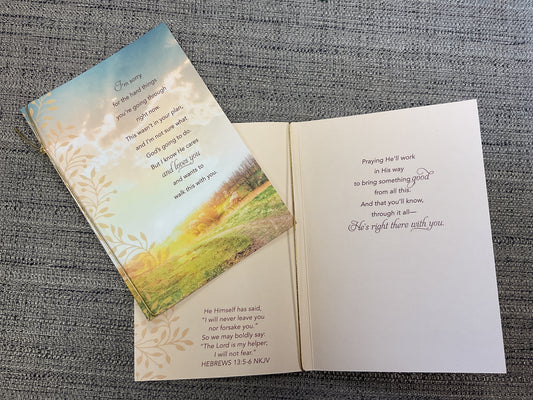 I'm sorry
for the hard things
you're going through
right now.
This wasn't in your plan,
and I'm not sure what
God's going to do.
But I know He cares
and loves you
and wants to
walk this with you.
Praying He'll work
in His way
to bring something good
from all this.
And that you'll know,
through it all—
He's right there with you.
He Himself has said,
"I will never leave you
nor forsake you."
So we may boldly say:
"The Lord is my helper;
I will not fear."
HEBREWS 13:5-6 NKJV